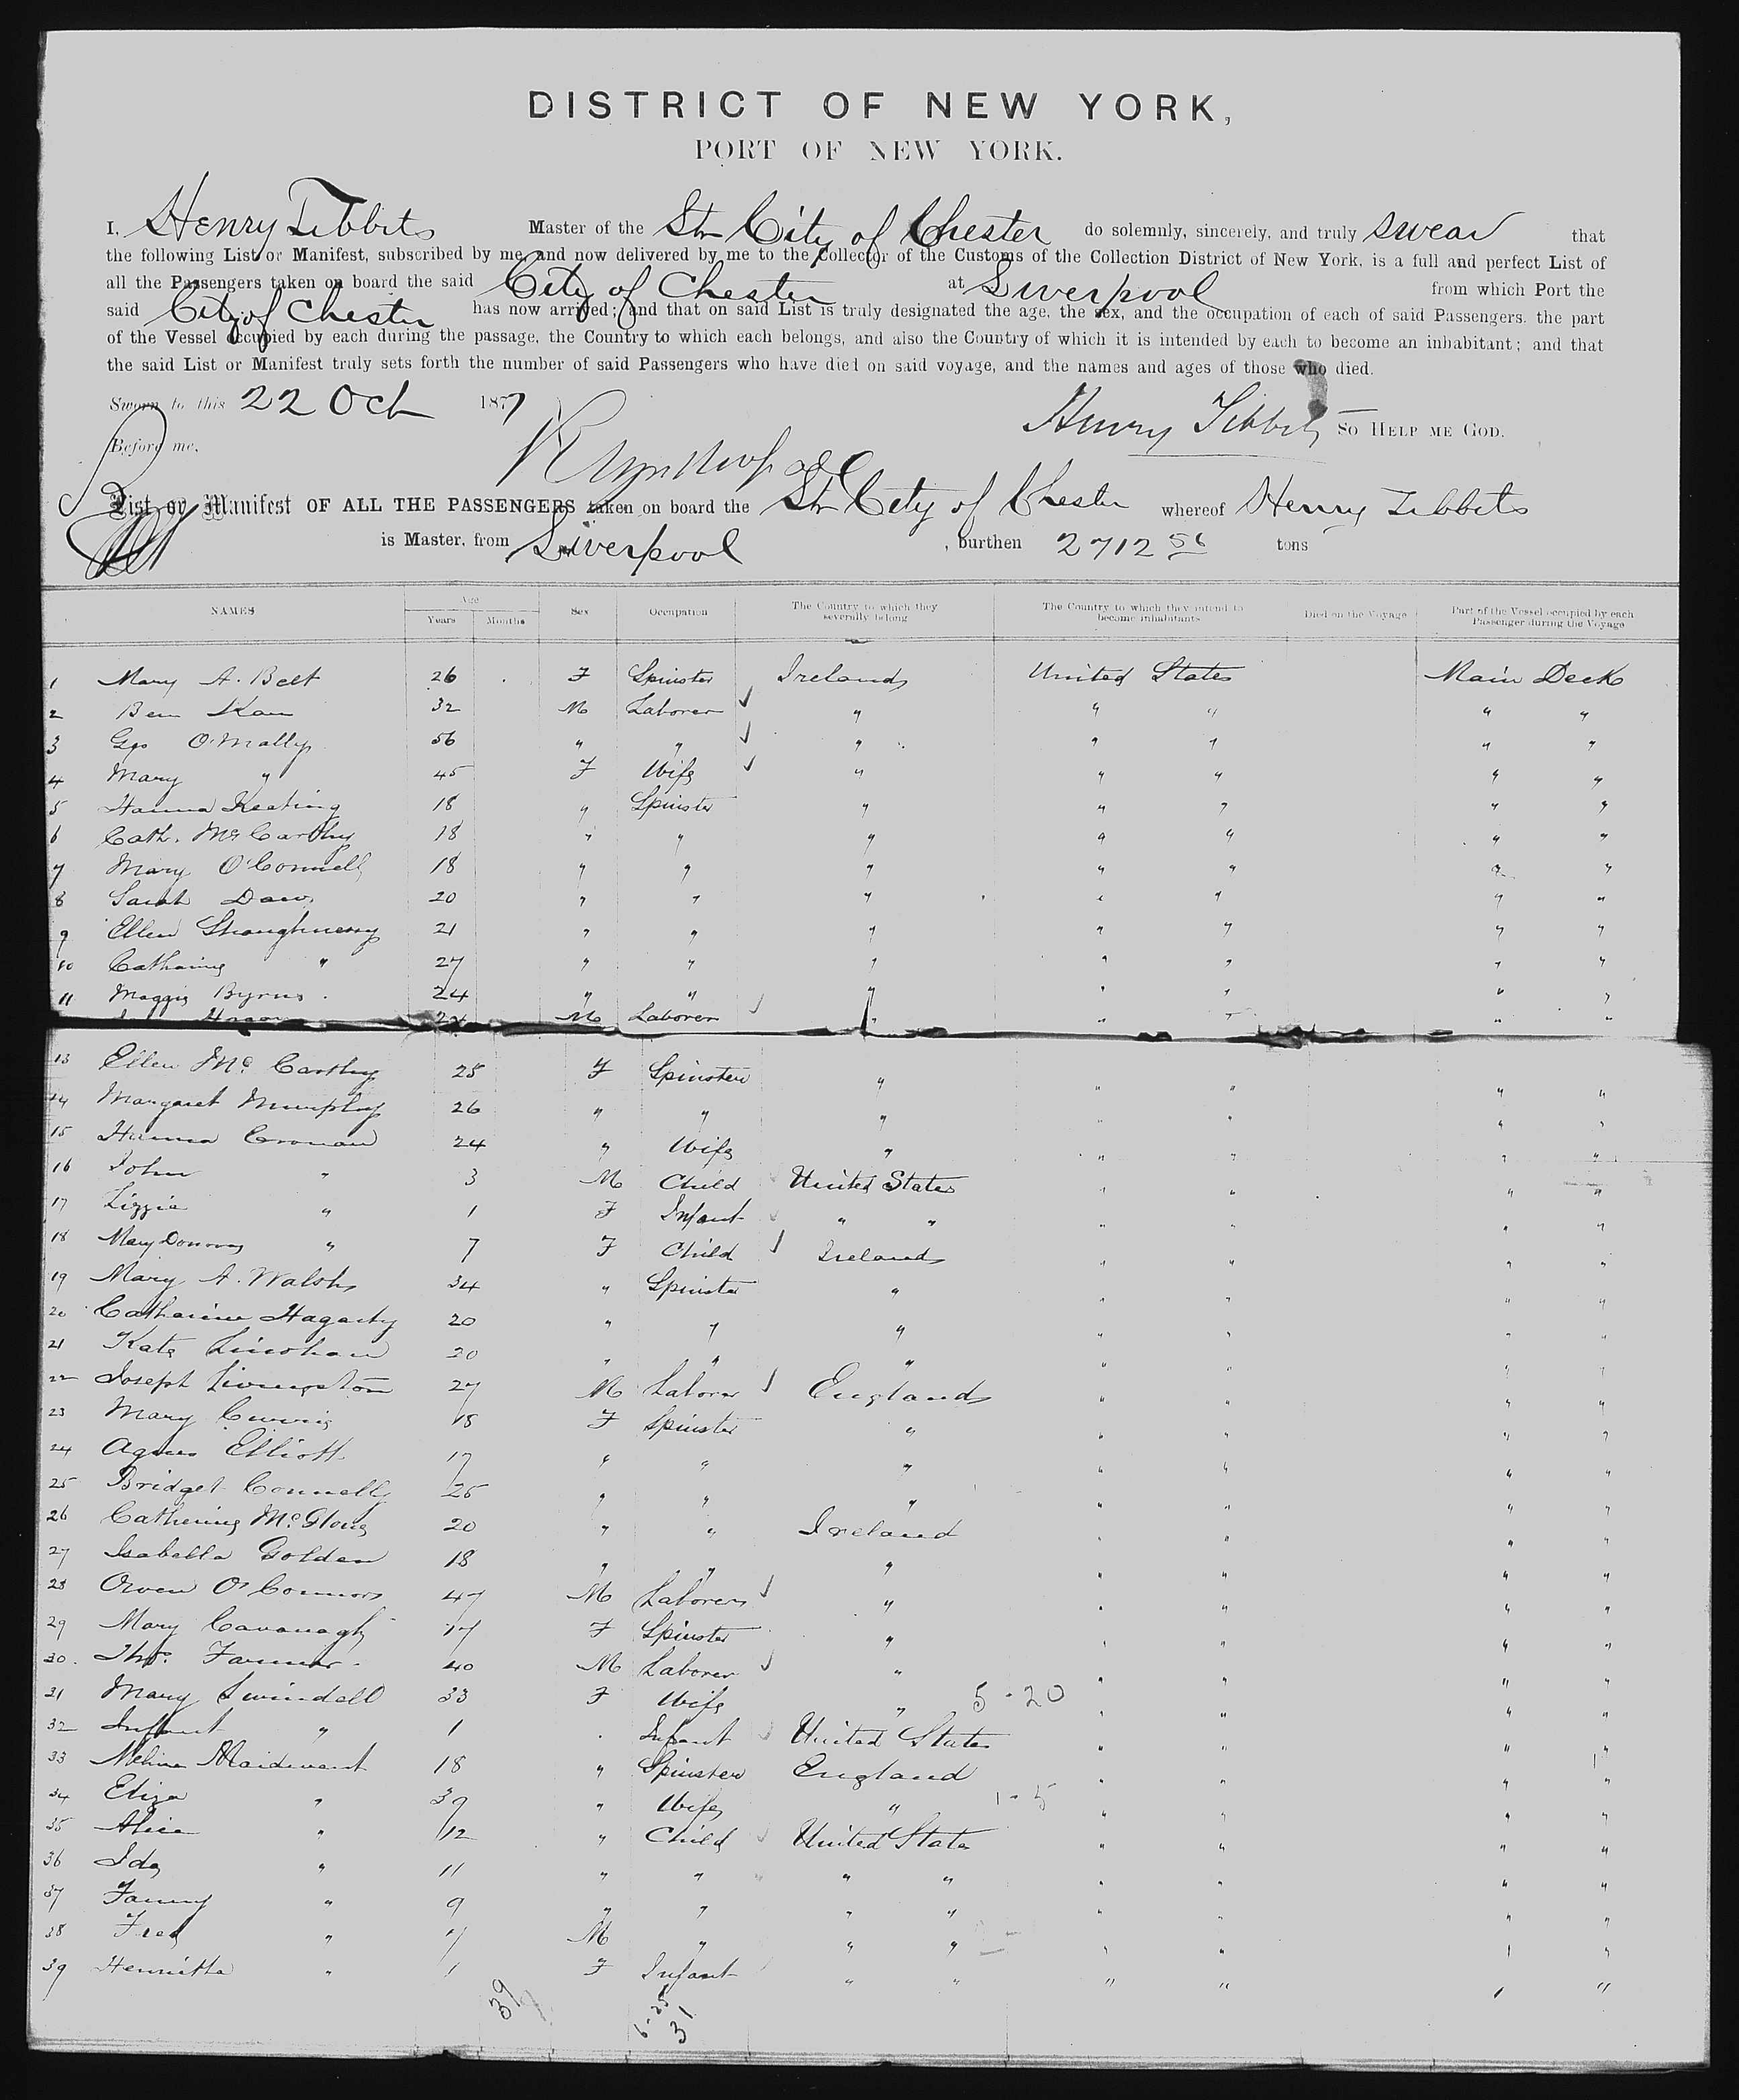 DISTRICT OF NEW YORK,
PORT OF NEW YORK.
I, Henry Tibbits Master of the Str City of Chester do solemnly, sincerely, and truly swear that
the following List or Manifest, subscribed by me, and now delivered by me to the Collector of the Customs of the Collection District of New York, is a full and perfect List of
all the Passengers taken on board the said City of Chester at Liverpool from which Port the
said City of Chester has now arrived; and that on said List is truly designated the age, the sex, and the occupation of each of said Passengers. the part
of the Vessel occupied by each during the passage, the Country to which each belongs, and also the Country of which it is intended by each to become an inhabitant; and that
the said List or Manifest truly sets forth the number of said Passengers who have died on said voyage, and the names and ages of those who died.
Sworn to this 22 Oct 1877
Henry Tibbits So Help me God.
Before me,
List or Manifest OF ALL THE PASSENGERS taken on board the Str City of Chester whereof Henry Tibbits
is Master, from Liverpool, burthen 2712 56 tons
NAMES Age Years Months Sex Occupation The Country to which they severally belong The Country to which they intend to become inhabitants Died on the Voyage Part of the Vessel occupied by each Passenger during the Voyage
1 Mary A. Belt 26 F Spinster Ireland United States Main Deck
2 Ben Kan 32 M Laborer " " " " "
3 Geo O'Mally 56 " " " " " " "
4 Mary " 45 F Wife " " " " "
5 Hanna Keating 18 " Spinster " " " " "
6 Cath. McCarthy 18 " " " " " " "
7 Mary O'Connell 18 " " " " " " "
8 Sarah Daw 20 " " " " " " "
9 Ellen Shaughnessy 21 " " " " " " "
10 Catharine " 27 " " " " " " "
11 Maggie Byrns. 24 " " " " " " "
M Laborer " " " " "
13 Ellen McCarthy 25 F Spinster " " " " "
14 Margaret Mumphy 26 " " " " " " "
15 Hanna Cronan 24 " Wife " " " " "
16 John " 3 M Child United States " " " "
17 Lizzie " 1 F Infant " " " " " "
18 Mary Donovan " 7 F Child Ireland " " " "
19 Mary A. Walsh 34 " Spinster " " " " "
20 Catharine Hagarty 20 " " " " " " "
21 Kate Linehan 20 " " " " " " "
22 Joseph Livingston 27 M Laborer England " " " "
23 Mary Currie 18 F Spinster " " " " "
24 Agnes Elliott 17 " " " " " " "
25 Bridget Connelly 25 " " " " " " "
26 Catherine McGlone 20 " " Ireland " " " "
27 Isabella Golden 18 " " " " " " "
28 Owen O'Connors 47 M Laborer " " " " "
29 Mary Cavanagh 17 F Spinster " " " " "
30. Thos. Farmer 40 M Laborer " " " " "
31 Mary Swindell 33 F Wife " 5-20 " " " "
32 Infant " 1 Infant United States " " " "
33 Melina Maidment 18 " Spinster England " " " "
34 Eliza " 39 " Wife " 1-5 " " " "
35 Alice " 12 " Child United States " " " "
36 Ida " 11 " " " " " " " "
37 Fanny " 9 " " " " " " " "
38 Fred " 7 M " " " " " " "
39 Henrietta " 1 F Infant " " " " " "
39
6-25
31